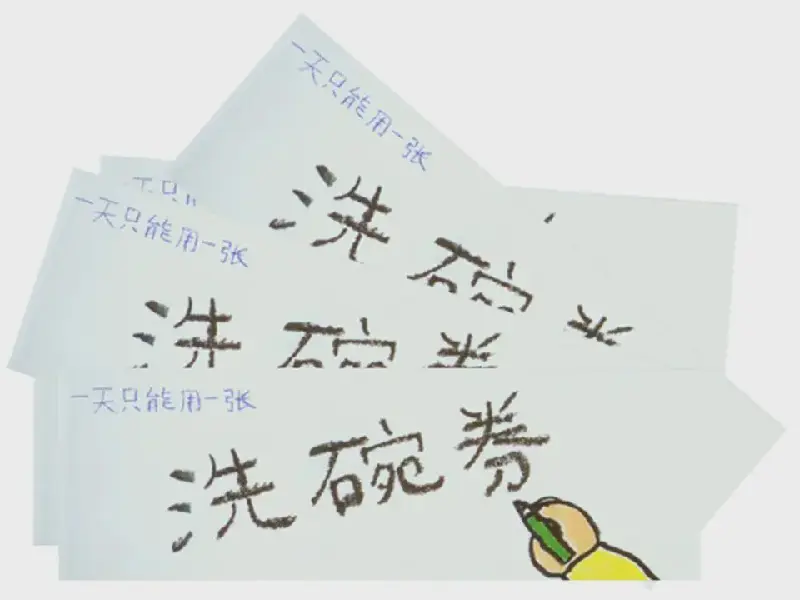 一天只能用一张
洗碗
一天只能用一张
洗碗券
一天只能用一张
洗碗券